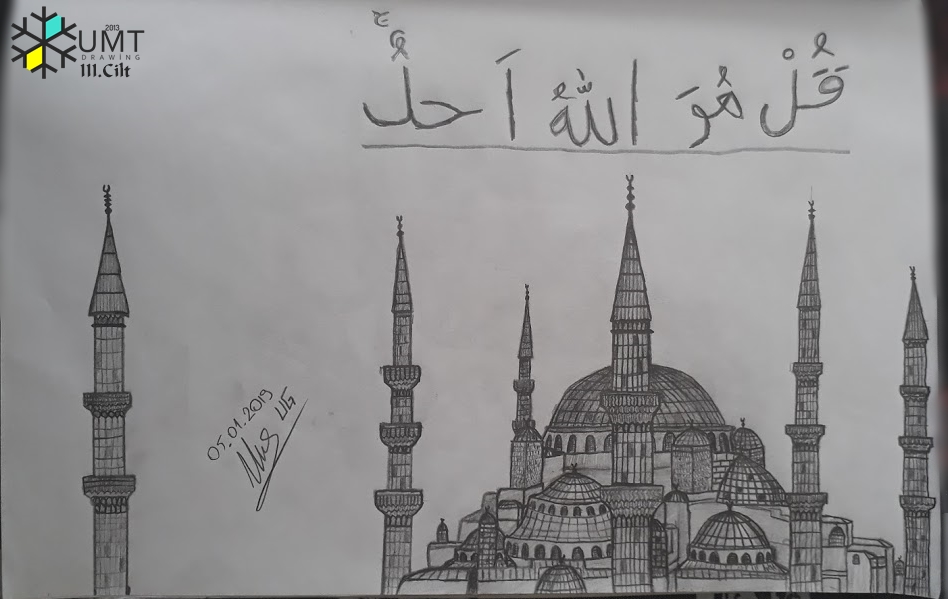 2013
UMT
DRAWİNG
111.Cilt
قُلْ هُوَ اللّٰهُ اَحَدٌۚ
05.01.2019
UG